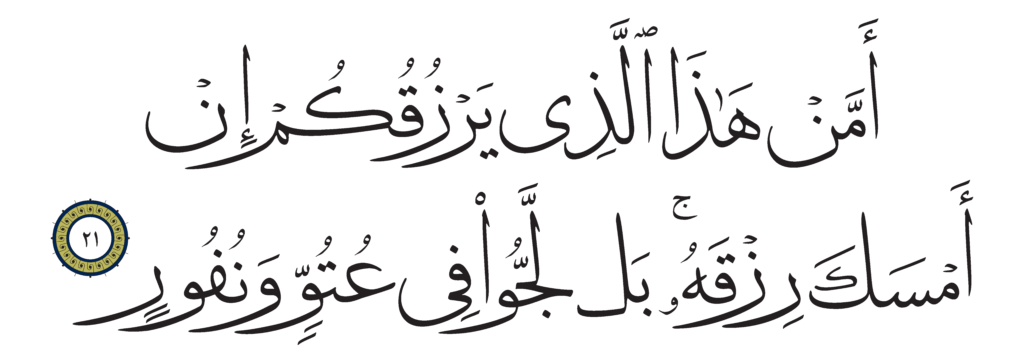 أَمَّنۡ هَٰذَا ٱلَّذِى يَرۡزُقُكُمۡ إِنۡ
أَمۡسَكَ رِزۡقَهُۥۚ بَل لَّجُّوا۟ فِى عُتُوٍّ وَنُفُورٍ ٢١